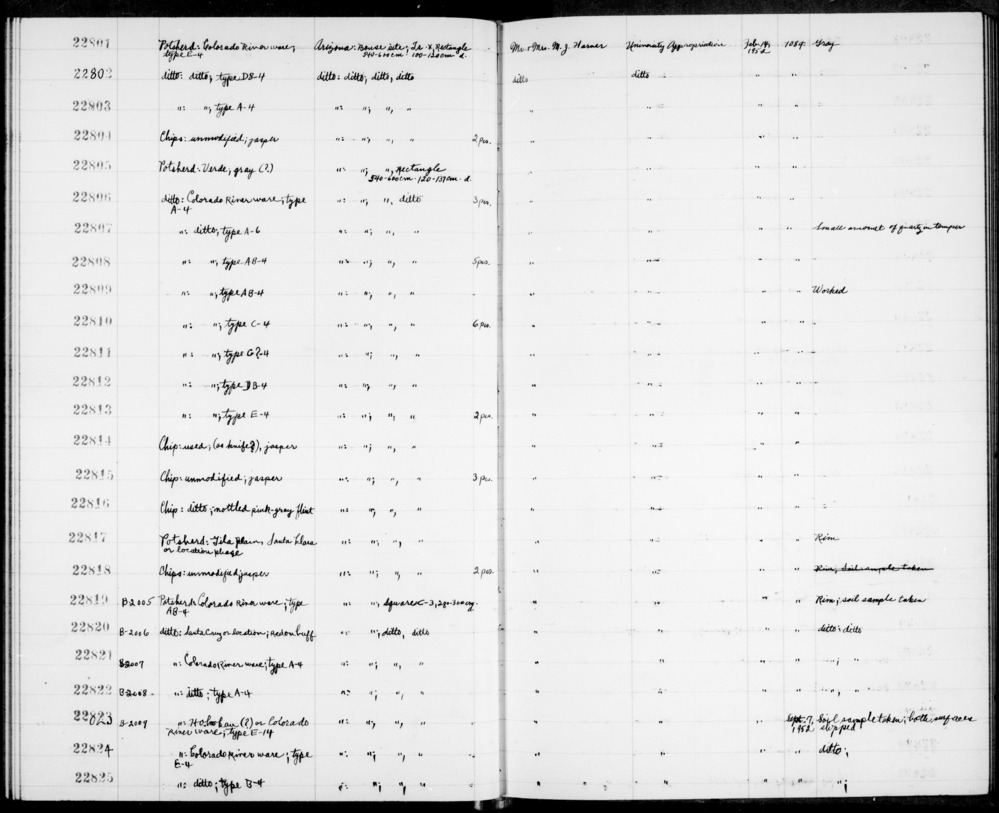 22801 Potsherd: Colorado River ware; Arizona: Bouse site; Tr. X, Rectangle Mr. & Mrs. M. J. Harner University Appropriation Feb. 14, 1084. Gray
type C-4 540-600cm: 100-120cm-d. 1952
22802 ditto: ditto; type DB-4 ditto: ditto; ditto, ditto ditto ditto " "
22803 ": "; type A-4 ": "; ", " " " " "
22804 Chips: unmodified; jasper ": "; ", " 2 pcs. " " " "
22805 Potsherd: Verde, gray (?) ": "; ", Rectangle " " " "
540-600cm-120-137cm-d.
22806 ditto: Colorado River ware; type ": "; ", ditto 3 pcs. " " " "
A-4
22807 ": ditto; type A-6 ": "; ", " " " " " Small amount of quartz in temper
22808 ": "; type AB-4 ": "; ", " 5 pcs. " " " "
22809 ": "; type AB-4 ": "; ", " " " " " Worked
22810 ": "; type C-4 ": "; ", " 6 pcs. " " " "
22811 ": "; type G?-4 ": "; ", " " " " "
22812 ": "; type DB-4 ": "; ", " " " " "
22813 ": "; type E-4 ": "; ", " 2 pcs. " " " "
22814 Chip: used; (as knife?), jasper ": "; ", " " " " "
22815 Chip: unmodified; jasper ": "; ", " 3 pcs. " " " "
22816 Chip: ditto; mottled pink-gray flint ": "; ", " " " " "
22817 Potsherd: Gila Plain, Santa Clara ": "; ", " " " " " Rim
or location phase
22818 Chips: unmodified jasper ": "; ", " 2 pcs. " " " " Rim; soil sample taken
22819 B-2005 Potsherd: Colorado River ware; type ": "; Square C-3, 280-300 cm. " " " " Rim; soil sample taken
AB-4
22820 B-2006 ditto: Santa Cruz or location; Red on buff ": "; ditto, ditto " " " " ditto: ditto
22821 B-2007 ": Colorado River ware; type A-4 ": "; ", " " " " " "; "
22822 B-2008 ": ditto; type A-4 ": "; ", " " " " " "; "
22823 B-2009 ": Hohokam (?) or Colorado ": "; ", " " " Sept. 7, Soil sample taken; both surfaces
River ware; type E-14 1952 slipped
22824 ": Colorado River ware; type ": "; ", " " " " " ditto;
E-4
22825 ": ditto; type B-4 ": "; ", " " " " " ";